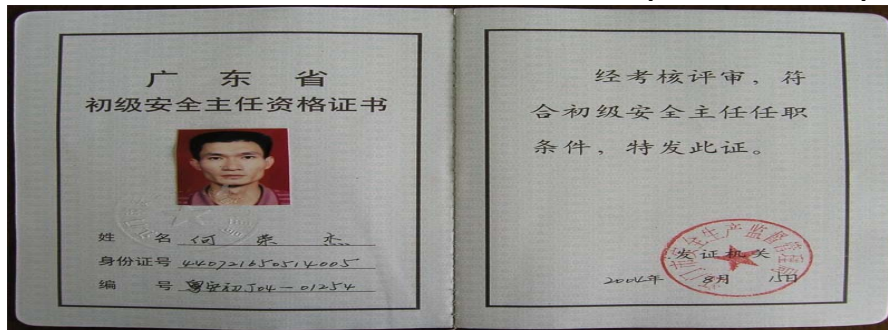 广东省
初级安全主任资格证书
姓名 何荣杰
身份证号 440721650514005
编号 粤安初J04-01254
经考核评审，符
合初级安全主任任职
条件，特发此证。
发证机关
2004年8月15日